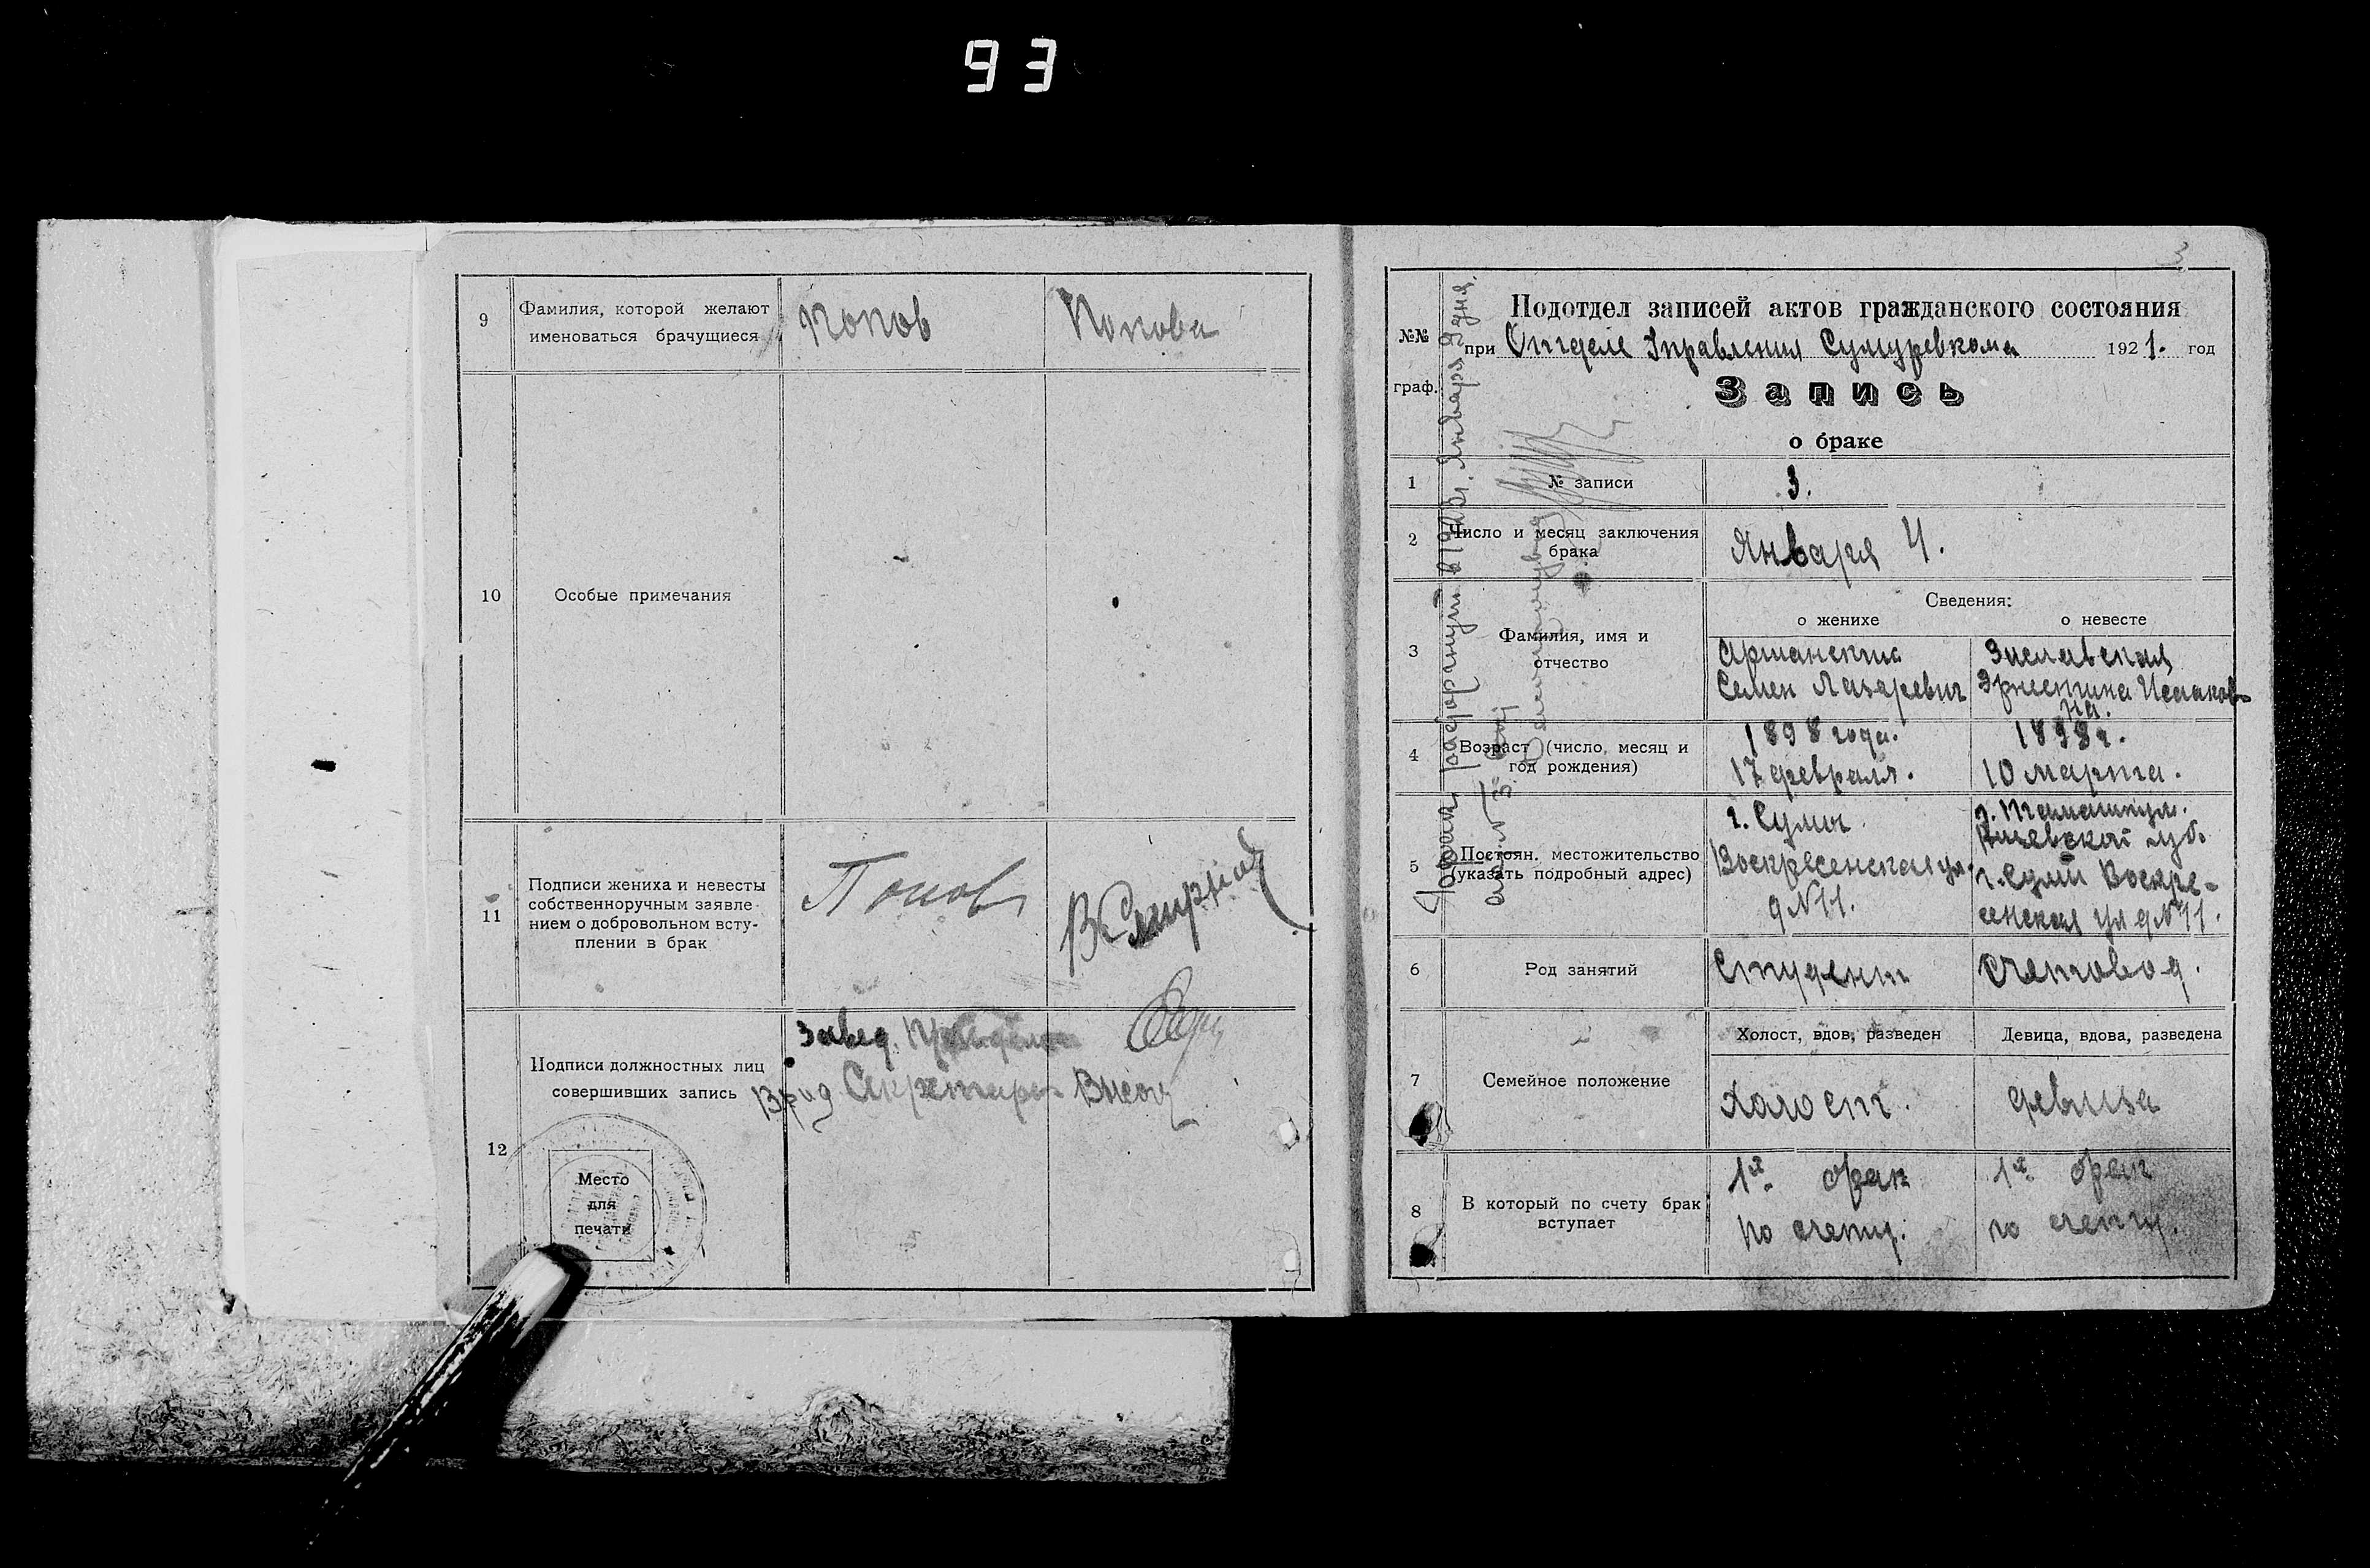 93
9
Фамилия, которой желают
именоваться брачущиеся
Попов
Попова
10
Особые примечания
11
Подписи жениха и невесты
собственноручным заявле-
нием о добровольном всту-
плении в брак
Попов
12
Подписи должностных лиц
совершивших запись
Завед.
Секретаря
Место
для
печати
3
№№
граф.
Подотдел записей актов гражданского состояния
при Отделе Управления Сумуревкома 1921. год
Запись
о браке
1
№ записи
3.
2
Число и месяц заключения
брака
Января 4.
3
Фамилия, имя и
отчество
Сведения:
о женихе
о невесте
Аршанский
Семен Лазаревич
Заславская
Эрнестина Исааков-
на.
4
Возраст (число, месяц и
год рождения)
1898 года.
17 февраля.
1898 г.
10 марта.
5
Постоян. местожительство
(указать подробный адрес)
г. Сумы
Воскресенская ул.
д № 11.
Киевской губ.
г. Сумы Воскре-
сенская ул д № 11.
6
Род занятий
Студент
Счетовод.
7
Семейное положение
Холост, вдов, разведен
Девица, вдова, разведена
Холост.
девица
8
В который по счету брак
вступает
1й брак
по счету.
1й брак
по счету.
Января 9 дня.